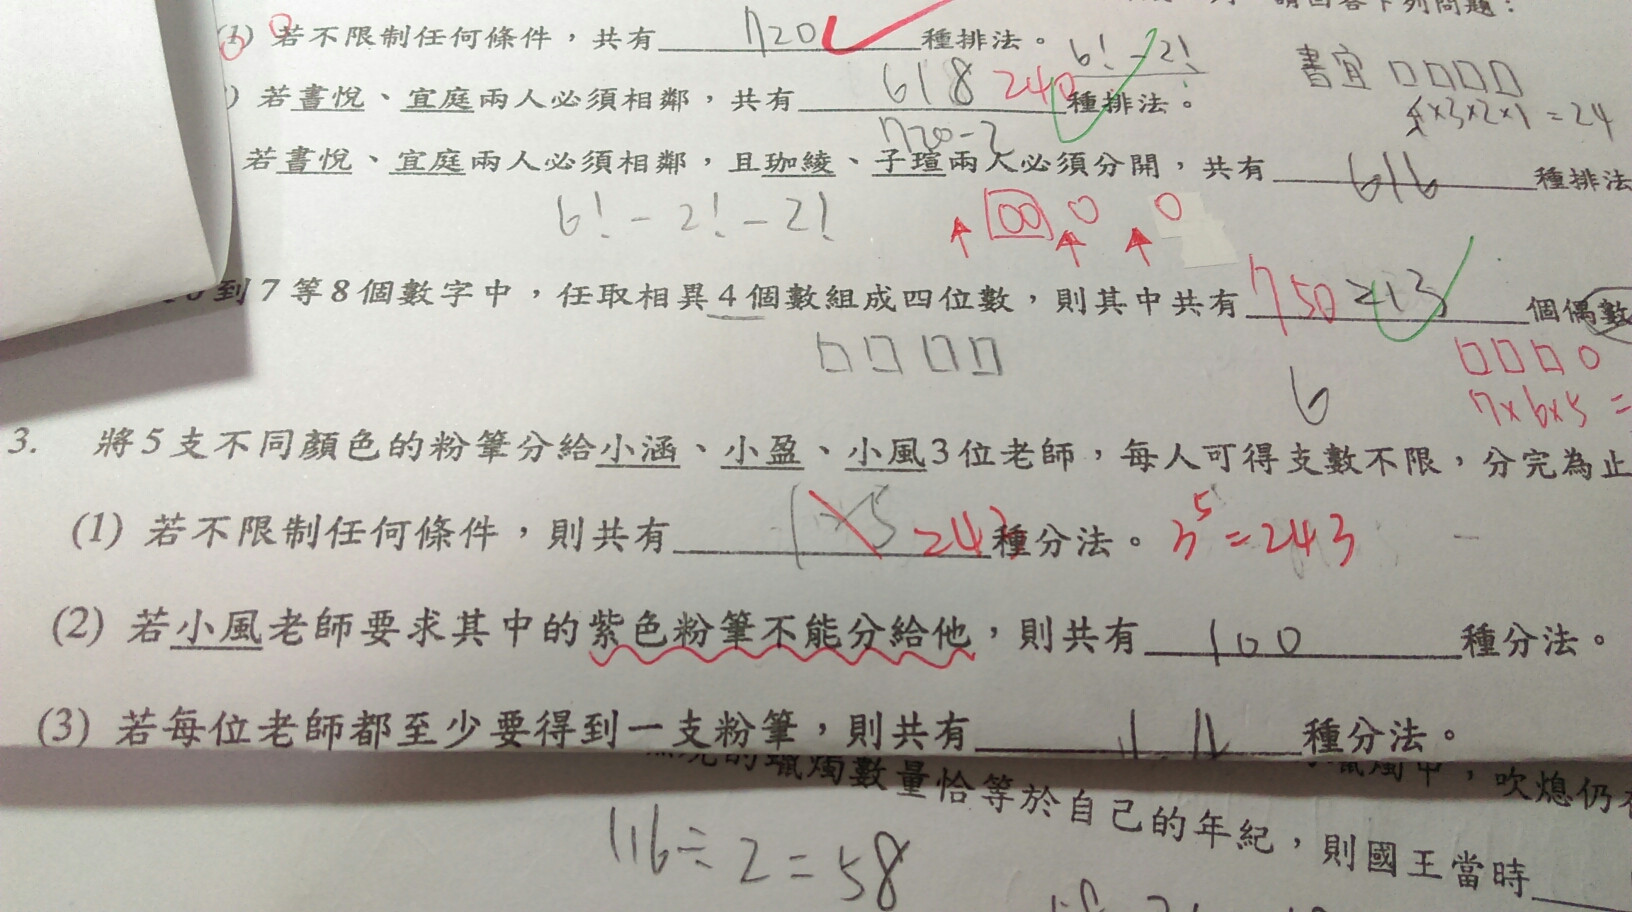 請回答下列問題：
(1) 若不限制任何條件，共有 720 種排法。
6! - 2!
書宜 □□□□
) 若書悅、宜庭兩人必須相鄰，共有 618 240 種排法。
4×3×2×1=24
720-2
若書悅、宜庭兩人必須相鄰，且珈綾、子瑄兩人必須分開，共有 616 種排法
6! - 2! - 2!
到7等8個數字中，任取相異4個數組成四位數，則其中共有 750 個偶數
7×6×5=
6
3. 將5支不同顏色的粉筆分給小涵、小盈、小風3位老師，每人可得支數不限，分完為止
(1) 若不限制任何條件，則共有 243 種分法。 3⁵=243
(2) 若小風老師要求其中的紫色粉筆不能分給他，則共有 100 種分法。
(3) 若每位老師都至少要得到一支粉筆，則共有 種分法。
的蠟燭數量恰等於自己的年紀，則國王當時
吹熄仍
116÷2=58